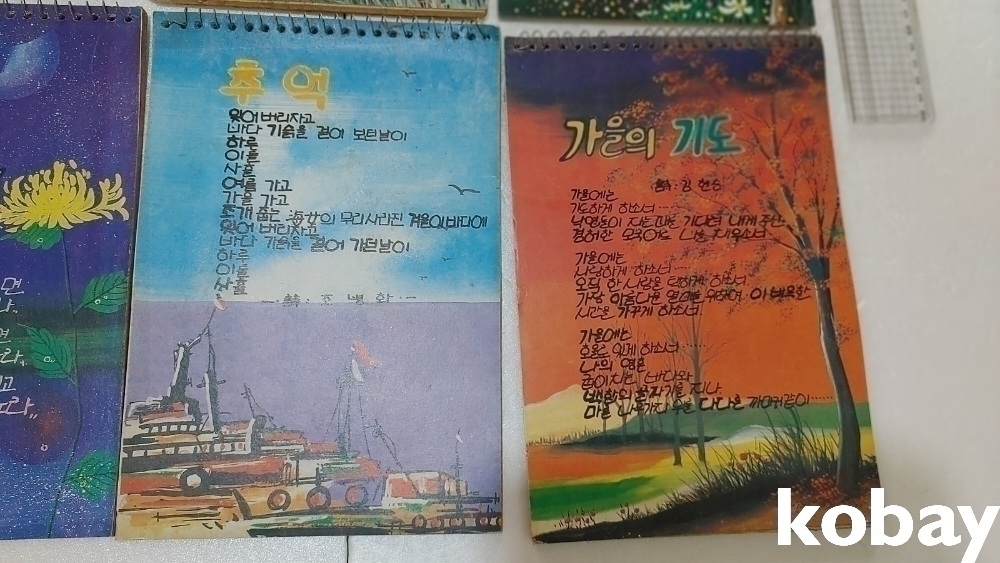 면
나.
면
라,,
고
라,,
추억
잊어버리자고
바다 기슭을 걸어 보던날이
하루
이틀
사흘
여름 가고
가을 가고
조개 줍는 海女의 무리사라진 겨울이바다에
잊어버리자고
바다 기슭을 걸어 가던날이
하루
이틀
사흘
詩: 조 병 화
가을의 기도
詩: 김 현승
가을에는
기도하게 하소서……
낙엽들이 지는때를 기다려 내게 주신
겸허한 모국어로 나를 채우소서.
가을에는
사랑하게 하소서……
오직 한 사람을 택하게 하소서.
가장 아름다운 열매를 위하여 이 비옥한
시간을 가꾸게 하소서.
가을에는
호올로 있게 하소서……
나의 영혼
굽이치는 바다와
백합의 골짜기를 지나
마른 나뭇가지 위에 다다른 까마귀같이……
kobay